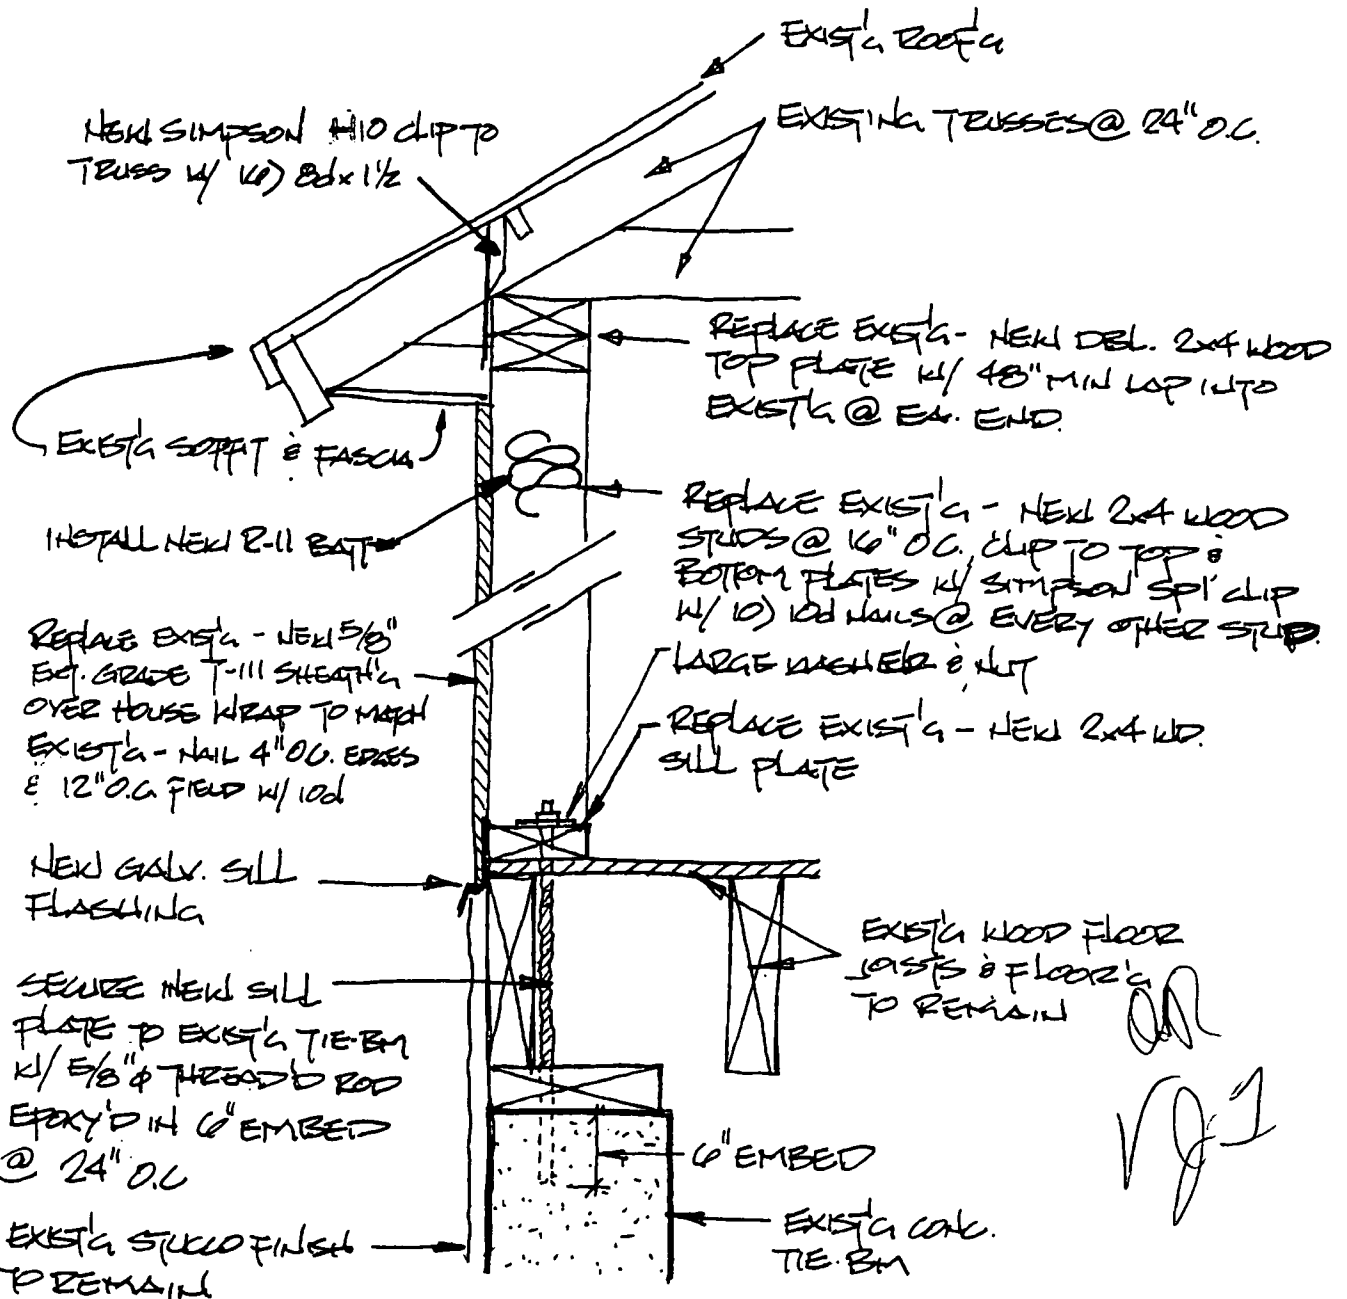 EXIST'G ROOF'G
EXISTING TRUSSES @ 24" O.C.
NEW SIMPSON H10 CLIP TO
TRUSS W/ 16) 8d x 1 1/2
REPLACE EXIST'G - NEW DBL. 2x4 WOOD
TOP PLATE W/ 48" MIN LAP INTO
EXIST'G @ EA. END.
EXIST'G SOFFIT & FASCIA
INSTALL NEW R-11 BATT
REPLACE EXIST'G - NEW 2x4 WOOD
STUDS @ 16" O.C. CLIP TO TOP &
BOTTOM PLATES W/ SIMPSON SP1 CLIP
W/ 10) 10d NAILS @ EVERY OTHER STUD.
REPLACE EXIST'G - NEW 5/8"
EXT. GRADE T-111 SHEATH'G
OVER HOUSE WRAP TO MATCH
EXIST'G - NAIL 4" O.C. EDGES
& 12" O.C. FIELD W/ 10d
LARGE WASHER & NUT
REPLACE EXIST'G - NEW 2x4 WD.
SILL PLATE
NEW GALV. SILL
FLASHING
EXIST'G WOOD FLOOR
JOISTS & FLOOR'G
TO REMAIN
SECURE NEW SILL
PLATE TO EXIST'G TIE-BM
W/ 5/8" φ THREAD'D ROD
EPOXY'D IN 6" EMBED
@ 24" O.C
6" EMBED
EXIST'G CONC.
TIE-BM
EXIST'G STUCCO FINISH
TO REMAIN